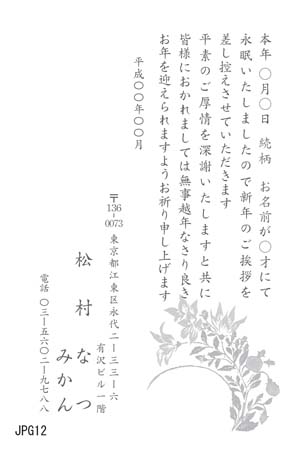 本年〇月〇日 続柄 お名前が〇才にて
永眠いたしましたので新年のご挨拶を
差し控えさせていただきます
平素のご厚情を深謝いたしますと共に
皆様におかれましては無事越年なさり良き
お年を迎えられますようお祈り申し上げます
平成〇〇年〇〇月
〒136-0073 東京都江東区永代二ー三三ー六
有沢ビル一階
松村 なつ
みかん
電話 〇三ー五六〇二ー九七八八
JPG12